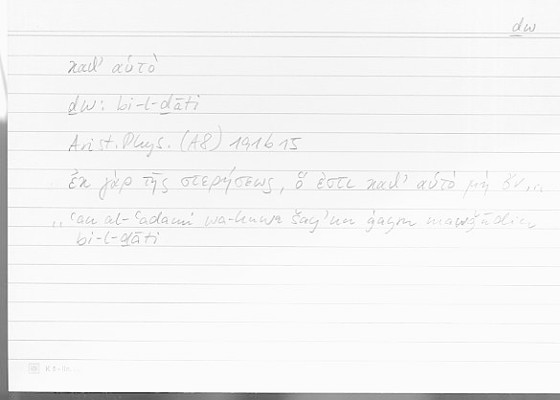 ḏw
καθ' αὑτό
ḏw: bi-l-ḏāti
Arist. Phys. (A8) 191b15
ἐκ γὰρ τῆς στερήσεως, ὅ ἐστι καθ' αὑτὸ μὴ ὄν...
„ʿan al-ʿadami wa-huwa šayʾun ġayru mawǧūdin
bi-l-ḏāti